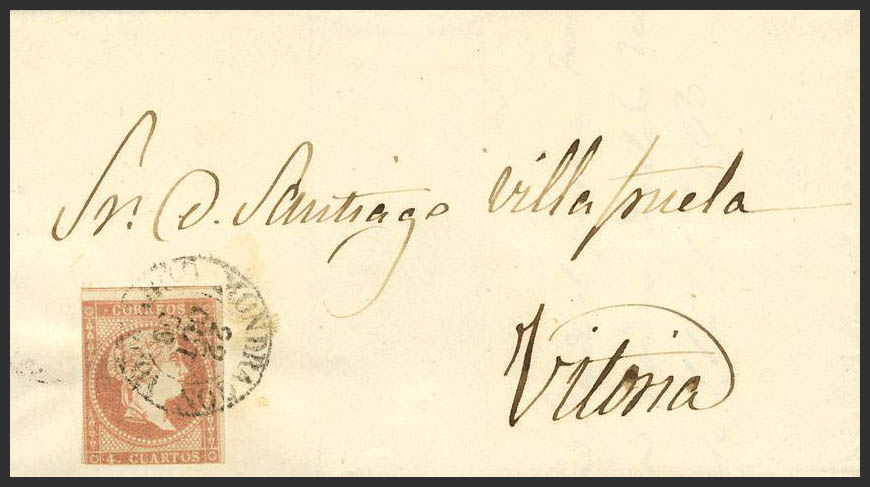 Sr. D. Santiago Villapuela
Vitoria
CORREOS
4. CUARTOS
MONDRAGON